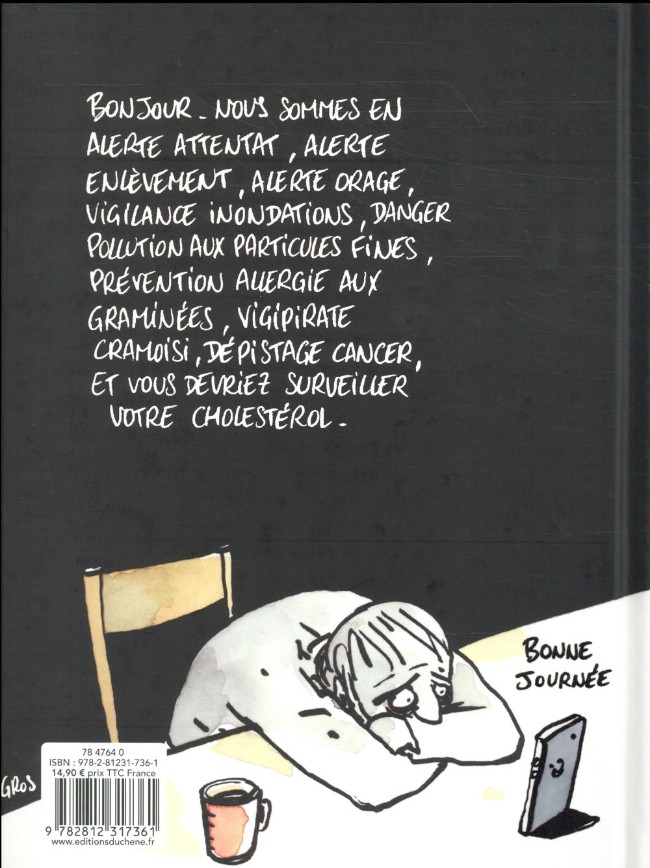 BONJOUR. NOUS SOMMES EN
ALERTE ATTENTAT, ALERTE
ENLÈVEMENT, ALERTE ORAGE,
VIGILANCE INONDATIONS, DANGER
POLLUTION AUX PARTICULES FINES,
PRÉVENTION ALLERGIE AUX
GRAMINÉES, VIGIPIRATE
CRAMOISI, DÉPISTAGE CANCER,
ET VOUS DEVRIEZ SURVEILLER
VOTRE CHOLESTÉROL.
BONNE
JOURNÉE
GROS
78 4764 0
ISBN : 978-2-81231-736-1
14,90 € prix TTC France
9 782812 317361
www.editionsduchene.fr